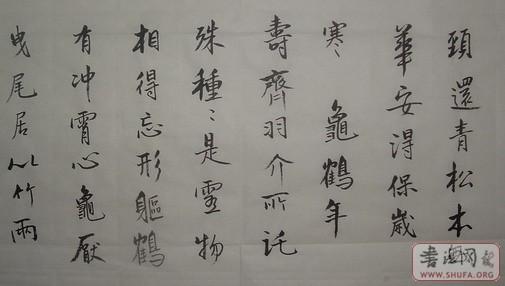 頸還青松本
華安得保歲
寒 龜鶴年
壽齊羽介所託
殊種〻是靈物
相得忘形軀鶴
有冲霄心龜厭
曳尾居以竹兩
WWW.SHUFA.ORG